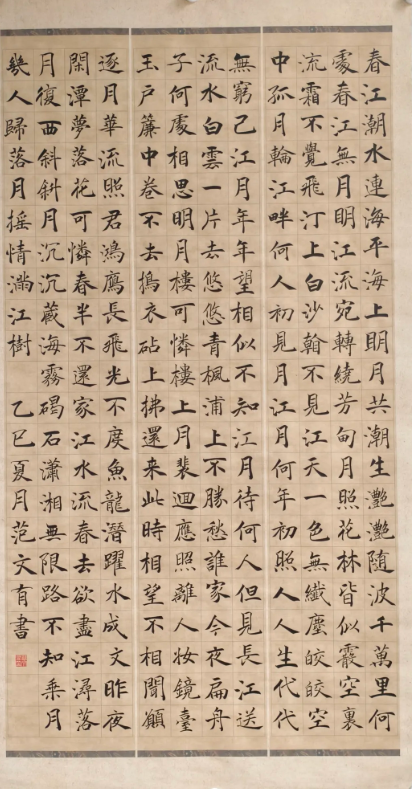 春江潮水連海平海上明月共潮生灧灧随波千萬里何
處春江無月明江流宛轉繞芳甸月照花林皆似霰空裏
流霜不覺飛汀上白沙翰不見江天一色無纖塵皎皎空
中孤月輪江畔何人初見月江月何年初照人人生代代
無窮已江月年年望相似不知江月待何人但見長江送
流水白雲一片去悠悠青楓浦上不勝愁誰家今夜扁舟
子何處相思明月樓可憐樓上月裴迴應照離人妝鏡臺
玉户簾中卷不去搗衣砧上拂還来此時相望不相聞願
逐月華流照君鴻鴈長飛光不度魚龍潛躍水成文昨夜
閑潭夢落花可憐春半不還家江水流春去欲盡江潯落
月復西斜斜月沉沉藏海霧碣石瀟湘無限路不知乘月
幾人歸落月摇情滿江樹 乙巳夏月范文有書